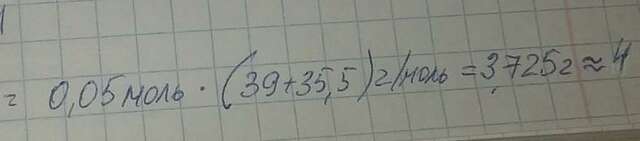 = 0,05 моль · (39+35,5) г/моль = 3,725 г ≈ 4